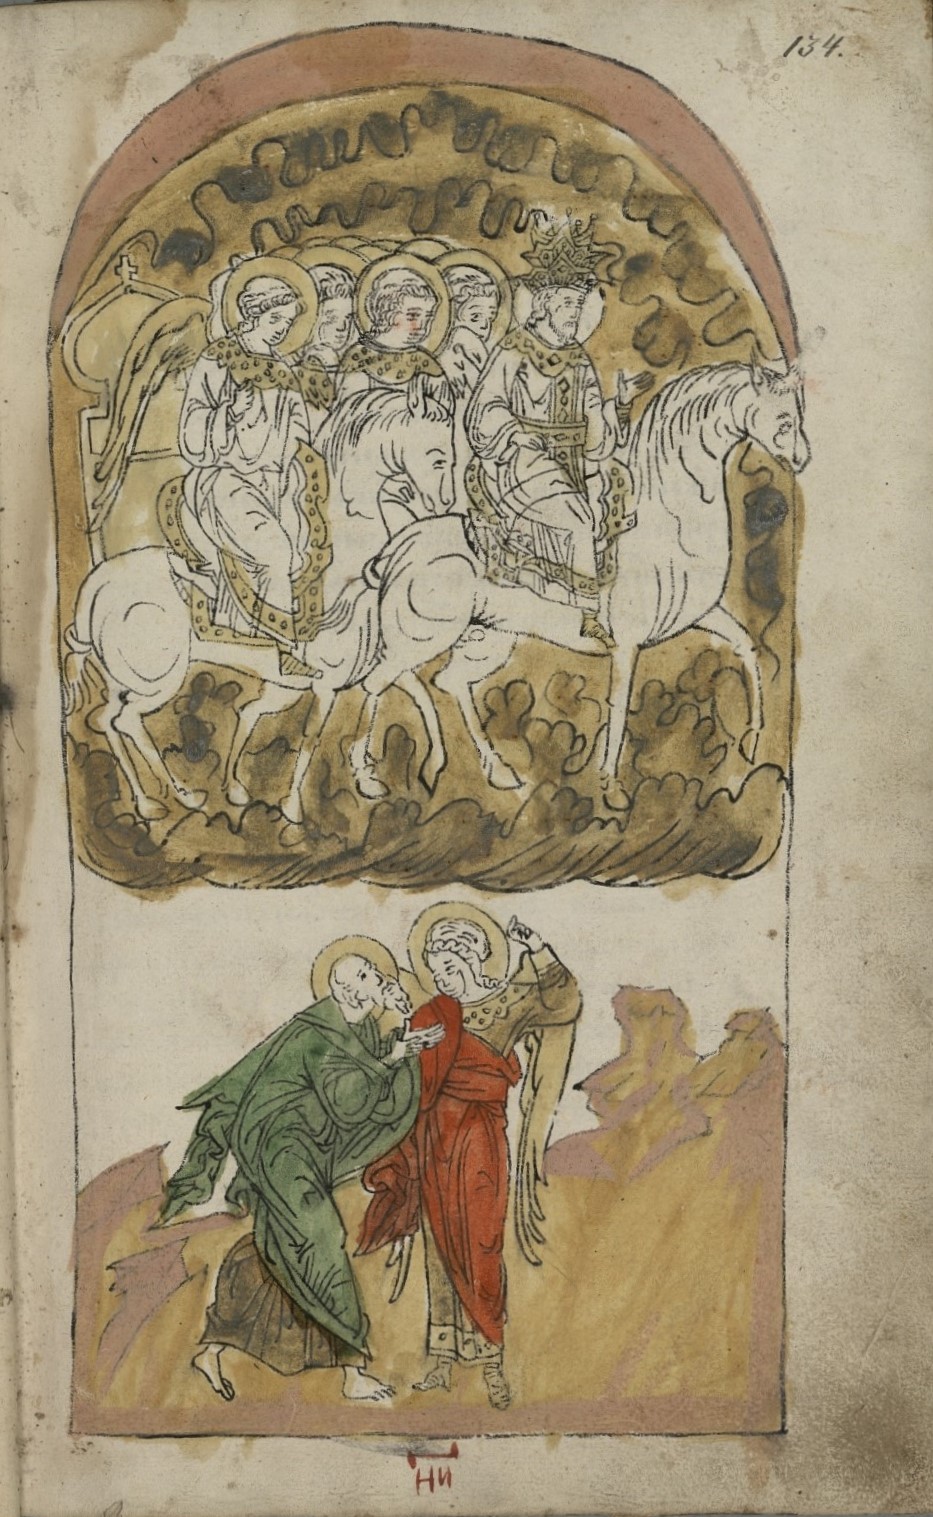 134.
НИ